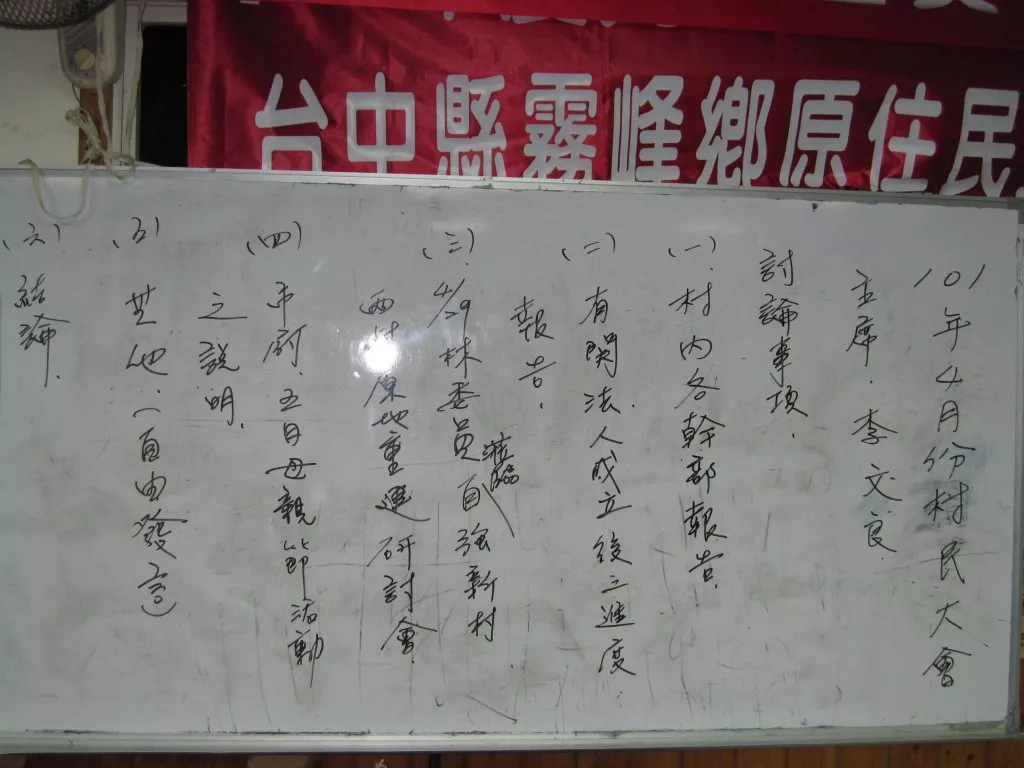 台中縣霧峰鄉原住民
101年4月份村民大會
主席.李文良
討論事項.
(一).村內各幹部報告.
(二)有関法人成立後之進度
報告.
(三)4/29林委員蒞臨自強新村
西村原地重建研討會
(四)市府五日母親節活動
之説明.
(五)其他.(自由發言)
(六)結論.